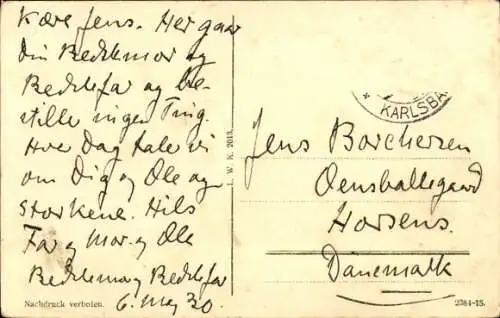 Kære Jens. Her gaar
Din Bedstemor og
Bedstefar og be-
stille ingen Ting.
Hver Dag tale vi
om Dig og Ole og
storkene. Hils
Far og Mor og Ole
Bedstemor og Bedstefar
6. Maj 30.
Nachdruck verboten.
L. W. K. 2013.
KARLSBA
Jens Borchersen
Oensballegaard
Horsens.
Dänemark
2384-15.